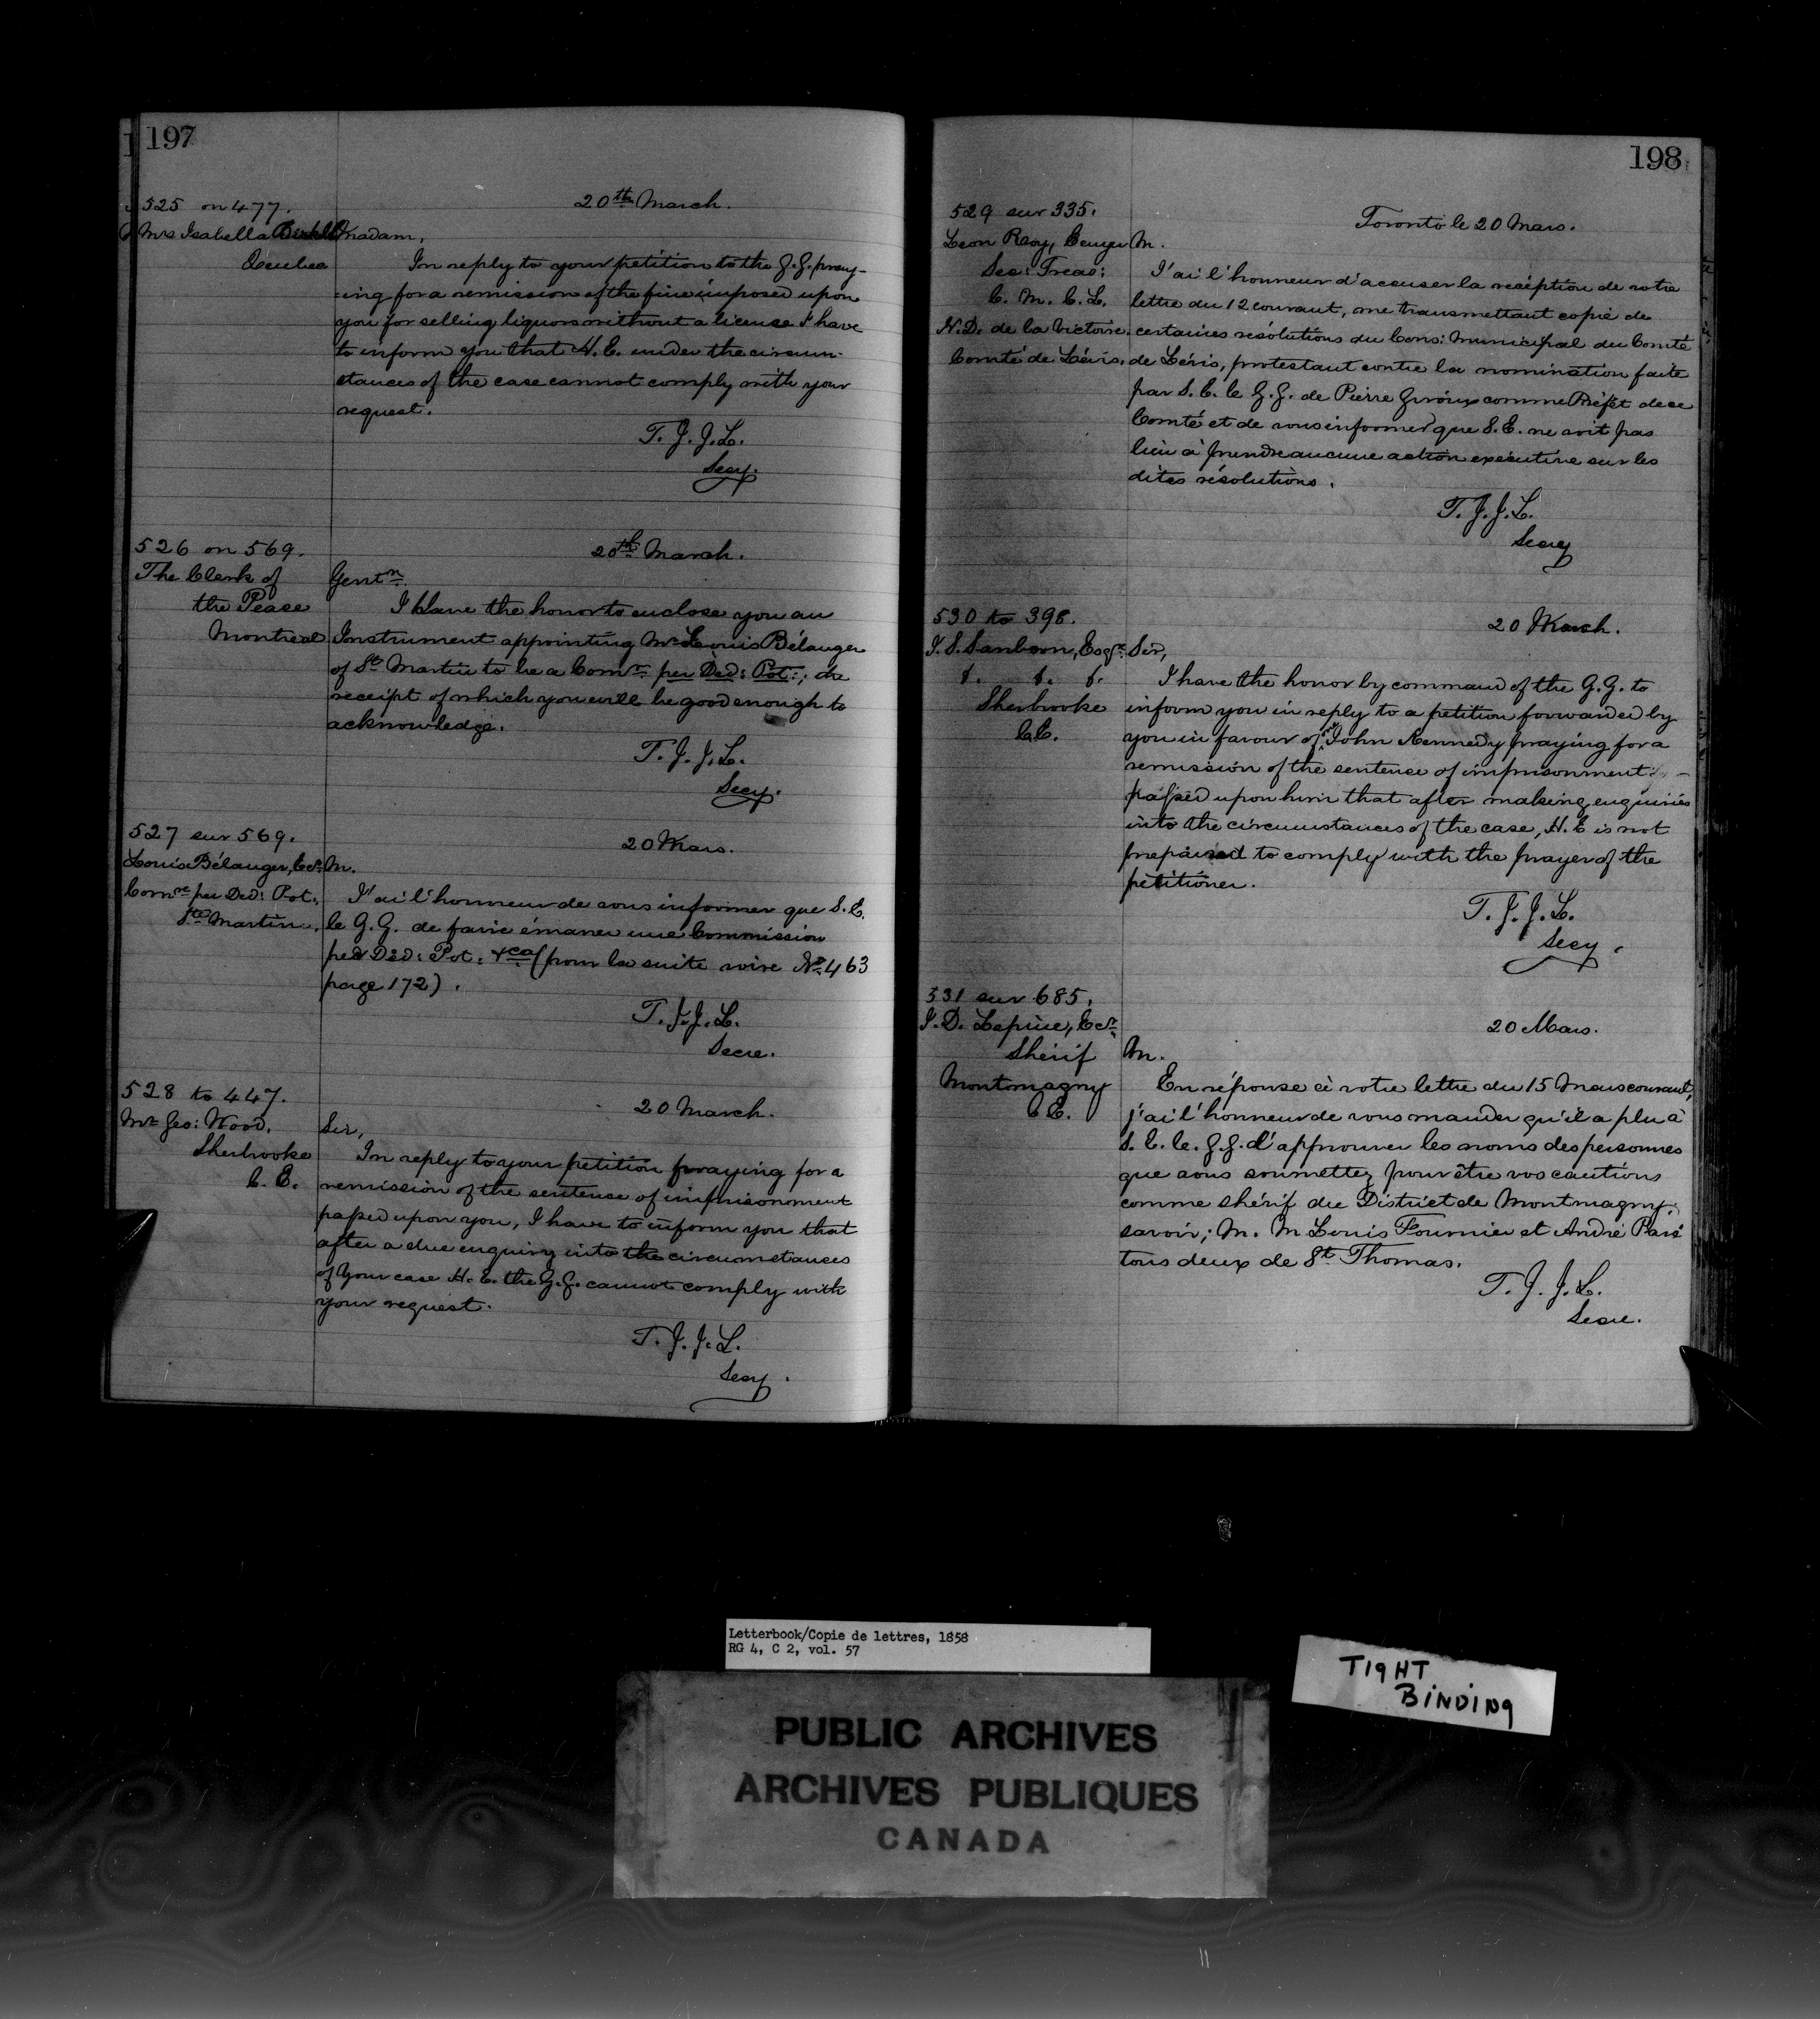 197
525 on 477.
20th March.
Mrs Isabella
Quebec
Madam,
In reply to your petition to the G.G. pray-
-ing for a remission of the fine imposed upon
you for selling liquors without a license I have
to inform you that H.E. under the circum-
stances of the case cannot comply with your
request.
T.J.J.L.
Secy.
526 on 569.
20th March.
The Clerk of
the Peace
Montreal
Gentn.
I Have the honor to enclose you an
Instrument appointing Mr Louis Bélanger
of St Martin to be a Comr. per Ded: Pot:; the
receipt of which you will be good enough to
acknowledge.
T.J.J.L.
Secy.
527 sur 569.
20 Mars.
Louis Bélanger, Ecr.
Comre per Ded: Pot:
Ste Martine.
M.
J'ai l'honneur de vous informer que S.E.
le G.G. de faire émaner une Commission
per Ded: Pot: &ca (pour la suite voire No. 463
page 172).
T.J.J.L.
Secre.
528 to 447.
20 March.
Mr Geo: Wood.
Sherbrooke
C.E.
Sir,
In reply to your petition praying for a
remission of the sentence of imprisonment
passed upon you, I have to inform you that
after a due enquiry into the circumstances
of your case H.E. the G.G. cannot comply with
your request.
T.J.J.L.
Secy.
198
529 sur 335.
Toronto le 20 Mars.
Leon Roy, Ecuyer
Sec: Treas:
C.M.C.L.
N.D. de la Victoire.
Comté de Lévis.
M.
J'ai l'honneur d'accuser la réception de votre
lettre du 12 courant, me transmettant copie de
certaines résolutions du Cons: Municipal du Comté
de Lévis, protestant contre la nomination faite
par S.E. le G.G. de Pierre Giroux comme Préfet de ce
Comté et de vous informer que S.E. ne voit pas
lieu à prendre aucune action exécutive sur les
dites résolutions.
T.J.J.L.
Secry
530 to 398.
20 March.
J.S. Sanborn, Esqr.
Sherbrooke
C.E.
Sir,
I have the honor by command of the G.G. to
inform you in reply to a petition forwarded by
you in favour of John Kennedy praying for a
remission of the sentence of imprisonment
passed upon him that after making enquiries
into the circumstances of the case, H.E is not
prepared to comply with the prayer of the
petitioner.
T.J.J.L.
Secy.
531 sur 685.
20 Mars.
J.D. Lepine, Ecr.
Shérif
Montmagny
C.E.
M.
En réponse à votre lettre du 15 Mars courant,
j'ai l'honneur de vous mander qu'il a plu à
S.E. le G.G. d'approuver les noms des personnes
que vous soumettez pour être vos cautions
comme shérif du District de Montmagny.
savoir; M. M Louis Fournier et André Paré
tous deux de St. Thomas.
T.J.J.L.
Secre.
Letterbook/Copie de lettres, 1858
RG 4, C 2, vol. 57
TIGHT
BINDING
PUBLIC ARCHIVES
ARCHIVES PUBLIQUES
CANADA